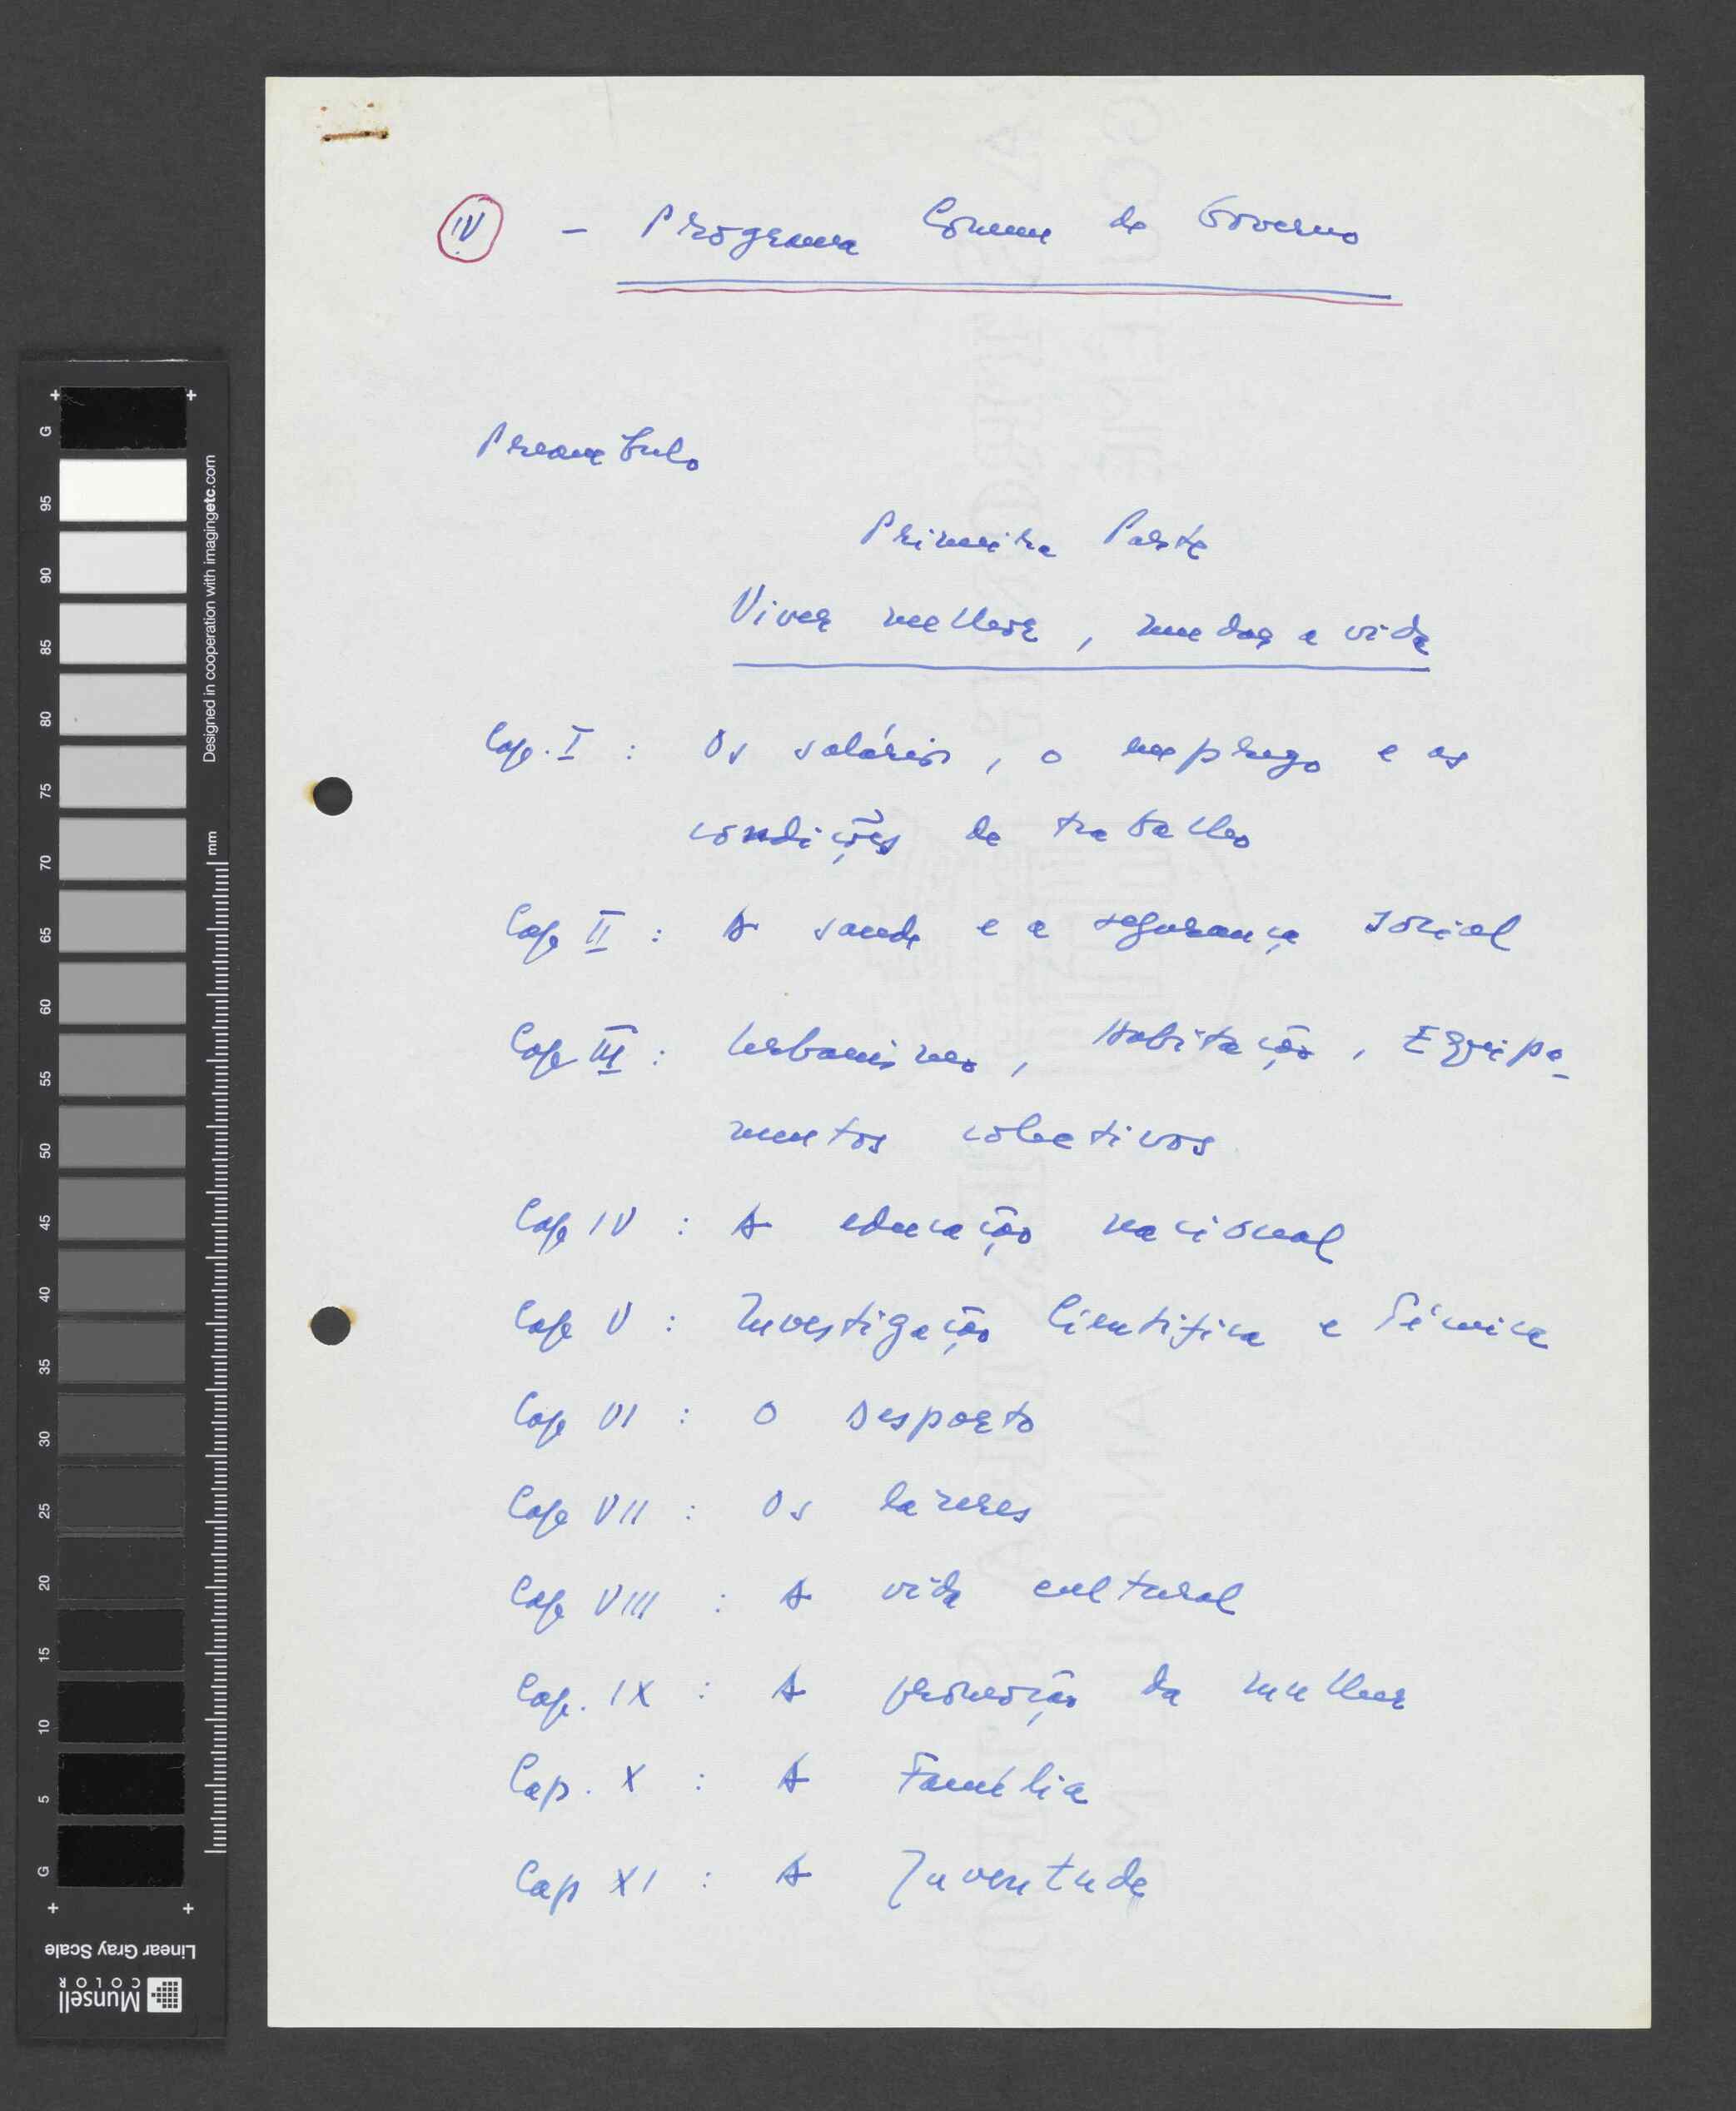 IV - Programa Comum de Governo
Preambulo
Primeira Parte
Viver melhor, mudar a vida
Cap. I : Os salários, o emprego e as
condições de trabalho
Cap II : A saude e a segurança social
Cap III : Urbanismo, Habitação, Equipa-
mentos colectivos
Cap IV : A educação nacional
Cap V : Investigação Cientifica e Técnica
Cap VI : O Desporto
Cap VII : Os lazeres
Cap VIII : A vida cultural
Cap. IX : A promoção da mulher
Cap. X : A Família
Cap XI : A Juventude
G
95
90
85
80
75
70
65
60
55
50
45
40
35
30
25
20
15
10
5
G
Designed in cooperation with imagingetc.com
mm
Linear Gray Scale
Munsell
COLOR